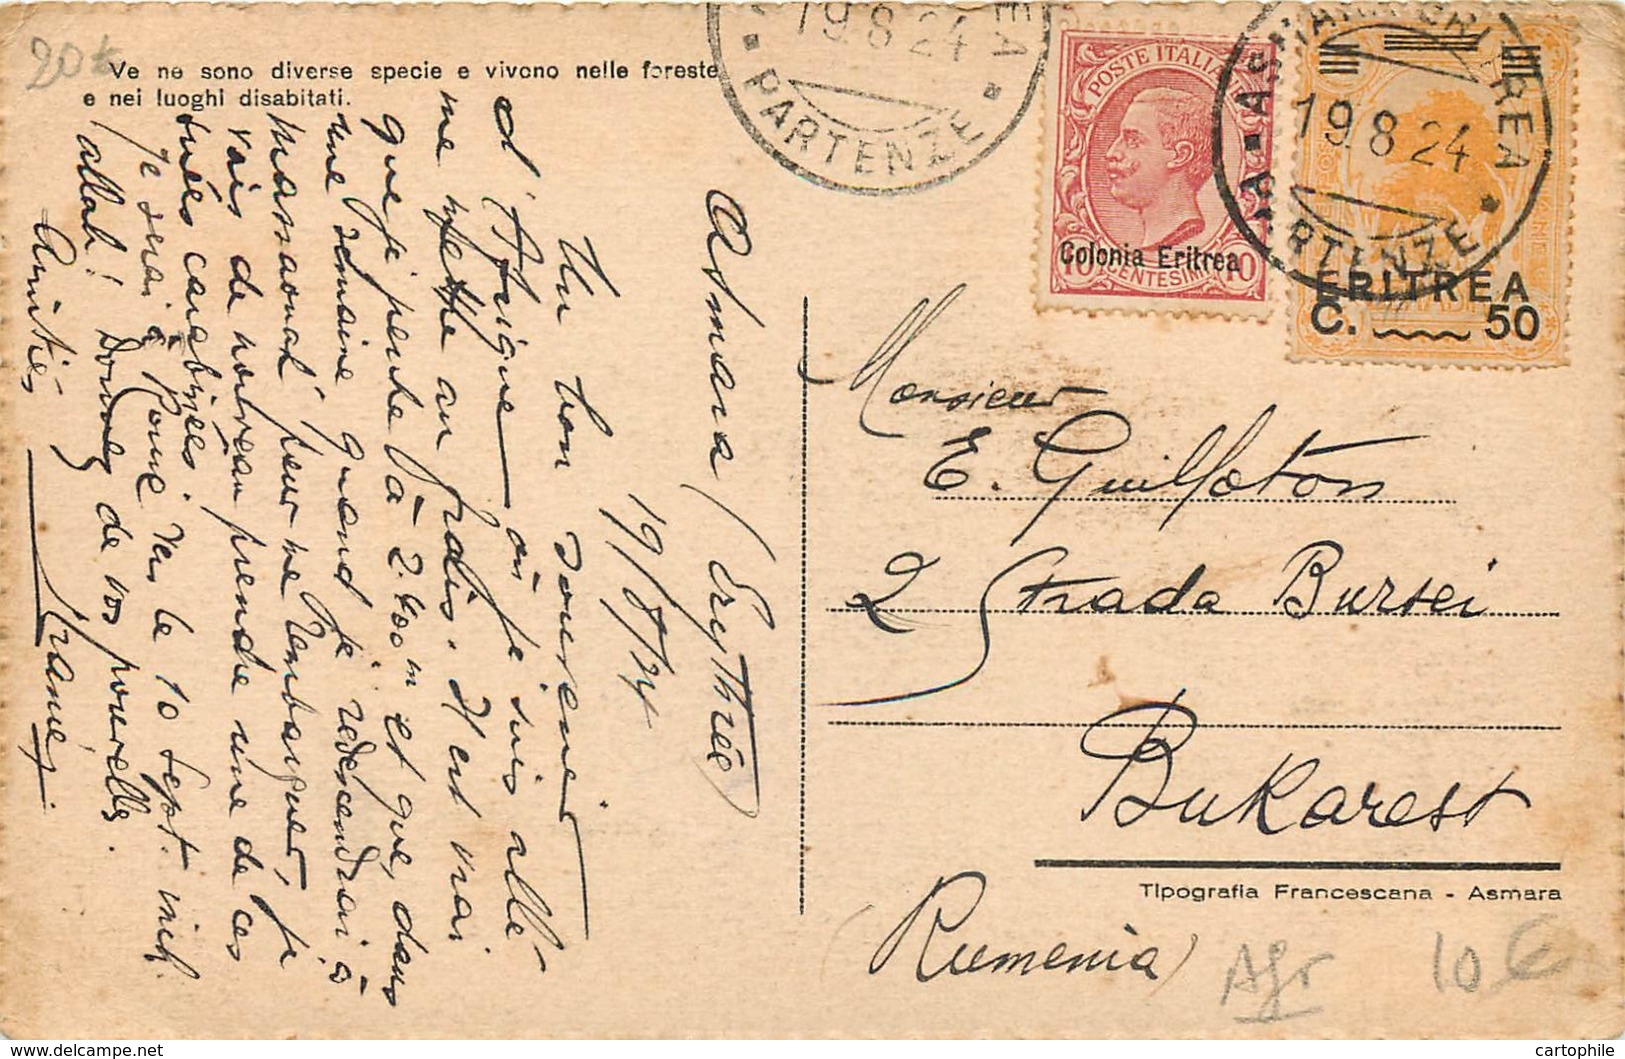 20t
Ve ne sono diverse specie e vivono nelle foreste
e nei luoghi disabitati.
19.8 24
PARTENZE
POSTE ITALIANE
Colonia Eritrea
10 CENTESIMI 10
ASMARA ERITREA
19.8 24
PARTENZE
ERITREA
C. 50
Asmara (Erythrée)
19/8/24
Un bon souvenir
d'Afrique où je suis allé
me mettre au frais. Il est vrai
que je perche à 2.400 m et que, dans
une semaine quand je redescendrai à
Massaouah pour me rembarquer, je
vais de nouveau prendre une de ces
suées carabinées.
Je serai à Rome vers le 10 sept. inch.
allah! Donnez de vos nouvelles.
Amitiés
Monsieur
E. Guilloton
2 Strada Bursei
Bukarest
(Rumenia)
Tipografia Francescana - Asmara
Afr
10 €
cartophile